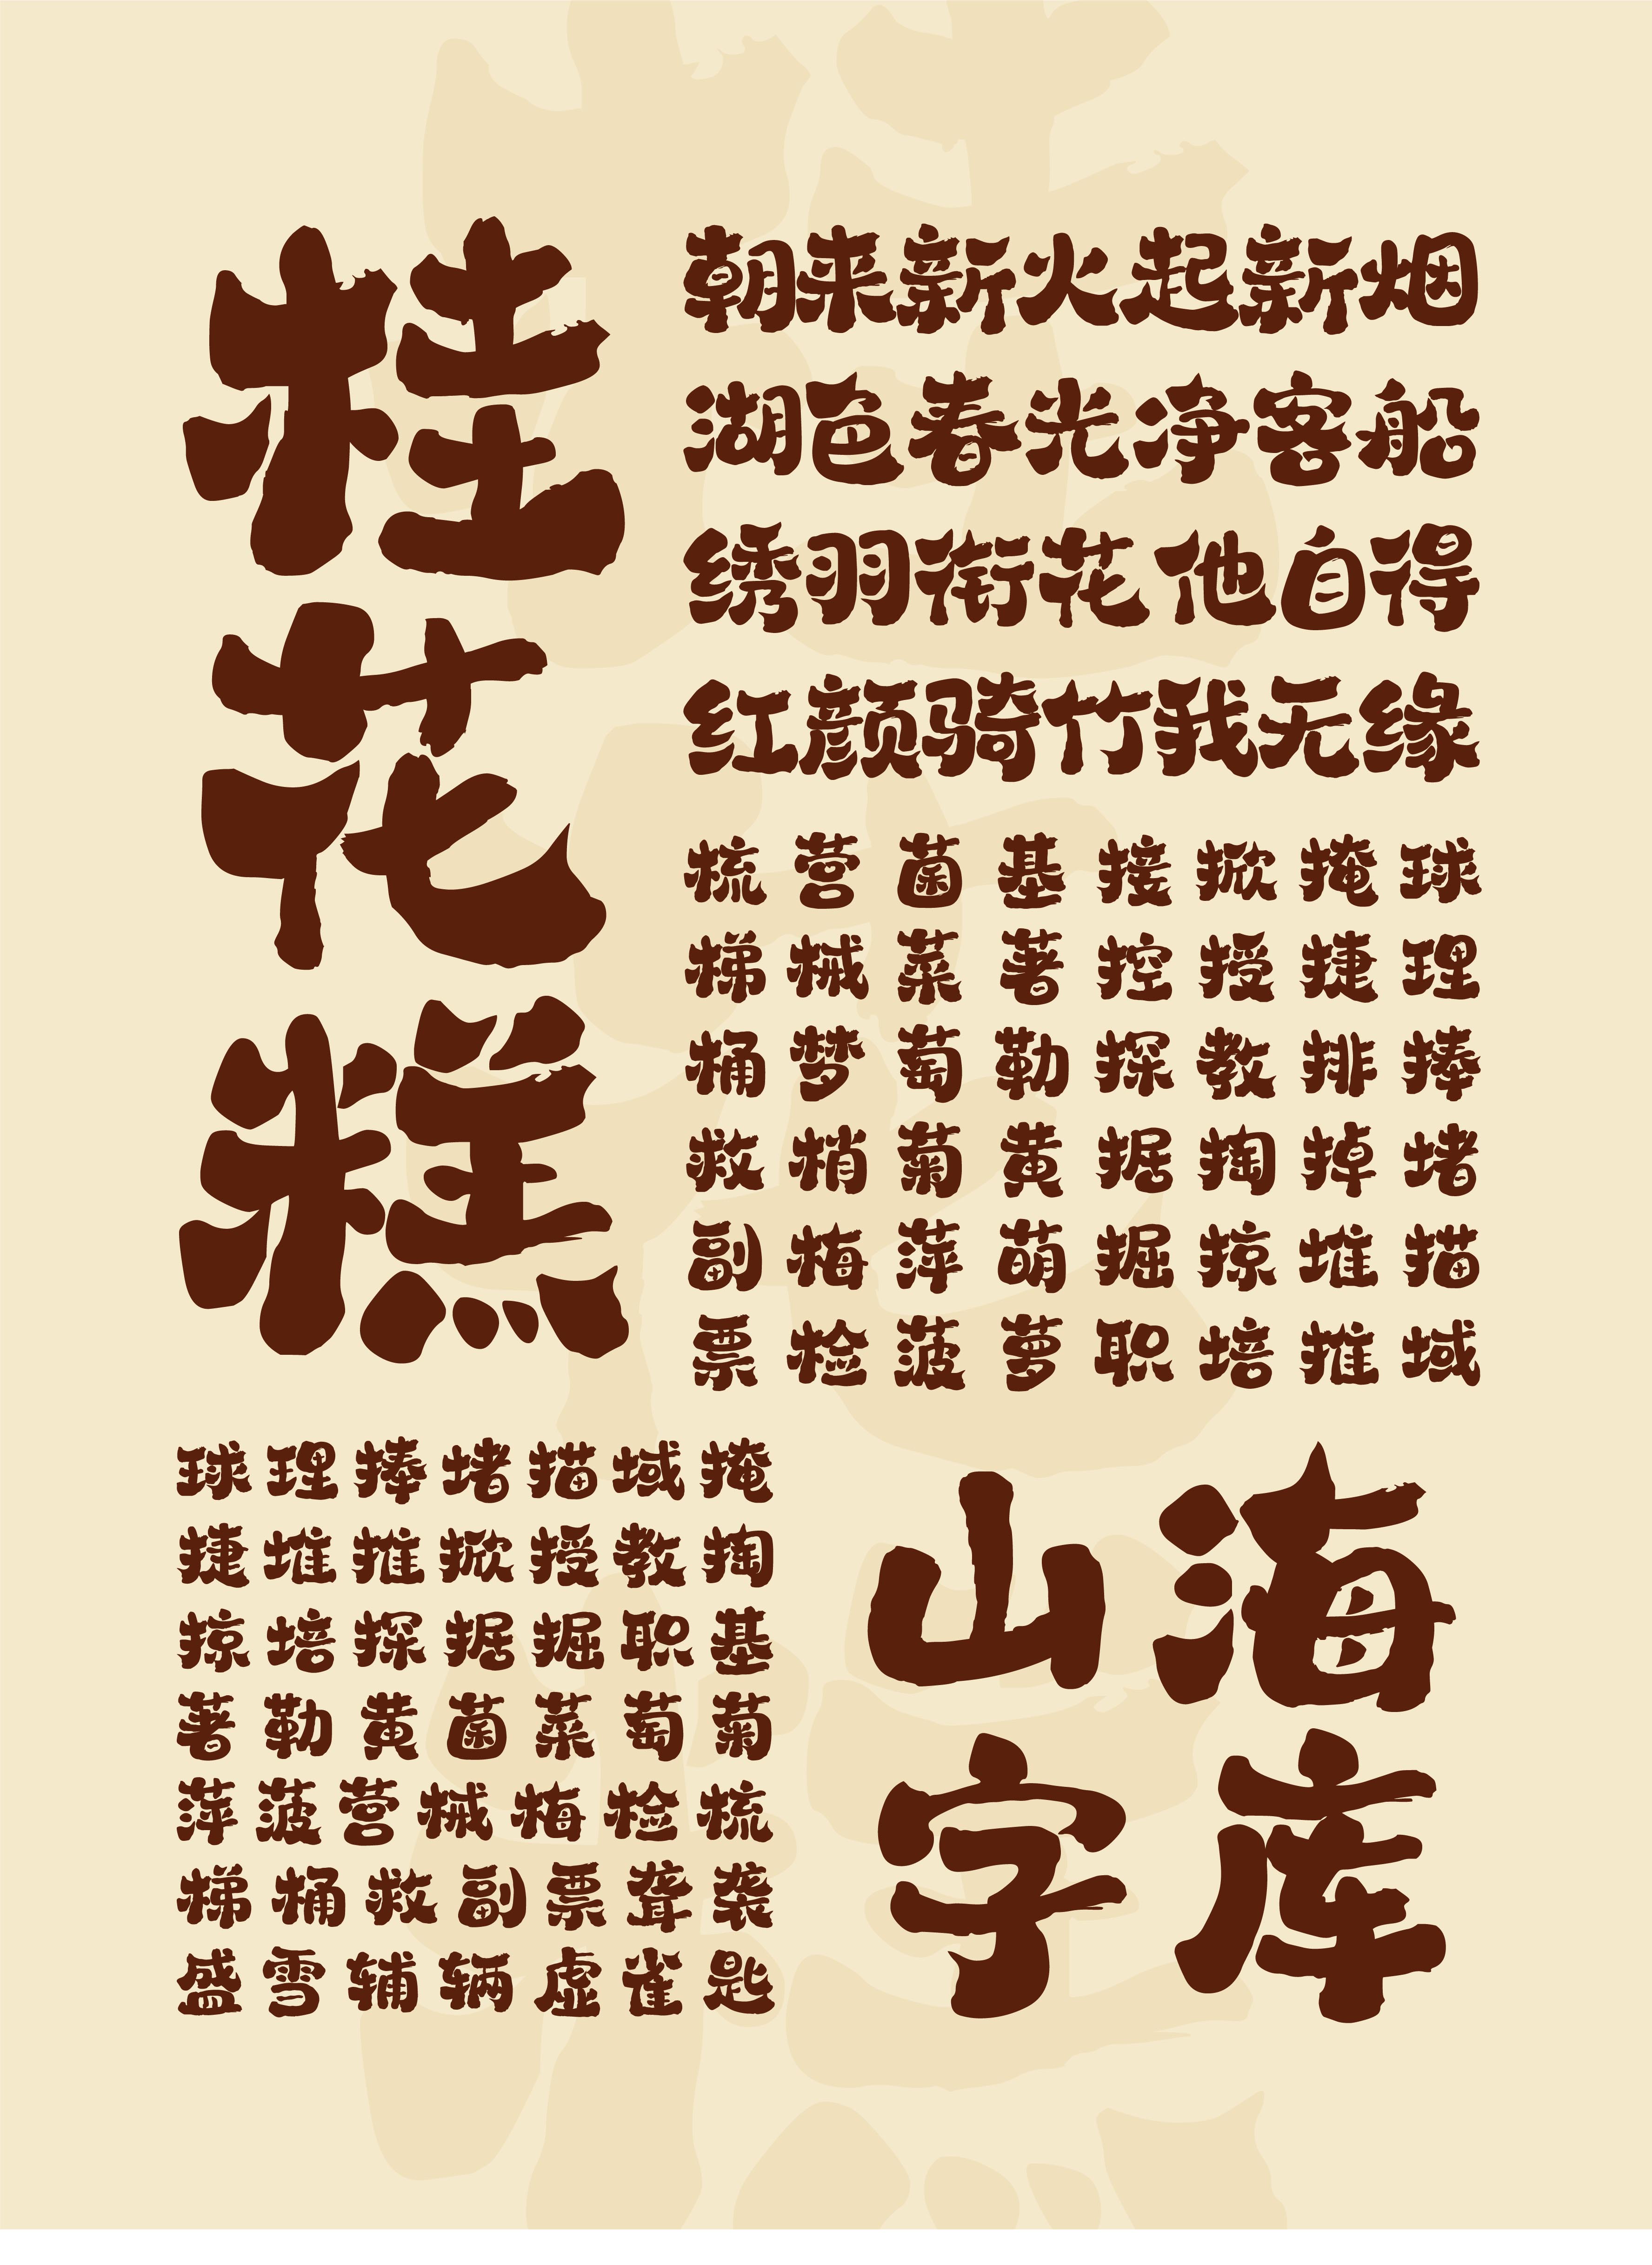 桂花糕
朝来新火起新烟
湖色春光净客船
绣羽衔花他自得
红颜骑竹我无缘
梳营菌基接掀掩球
梯械菜著控授捷理
桶梦萄勒探教排捧
救梢菊黄据掏掉堵
副梅萍萌掘掠堆描
票检菠萝职培推域
球理捧堵描域掩
捷堆推掀授教掏
掠培探据掘职基
著勒黄菌菜萄菊
萍菠营械梅检梳
梯桶救副票聋袭
盛雪辅辆虚雀匙
山海
字库